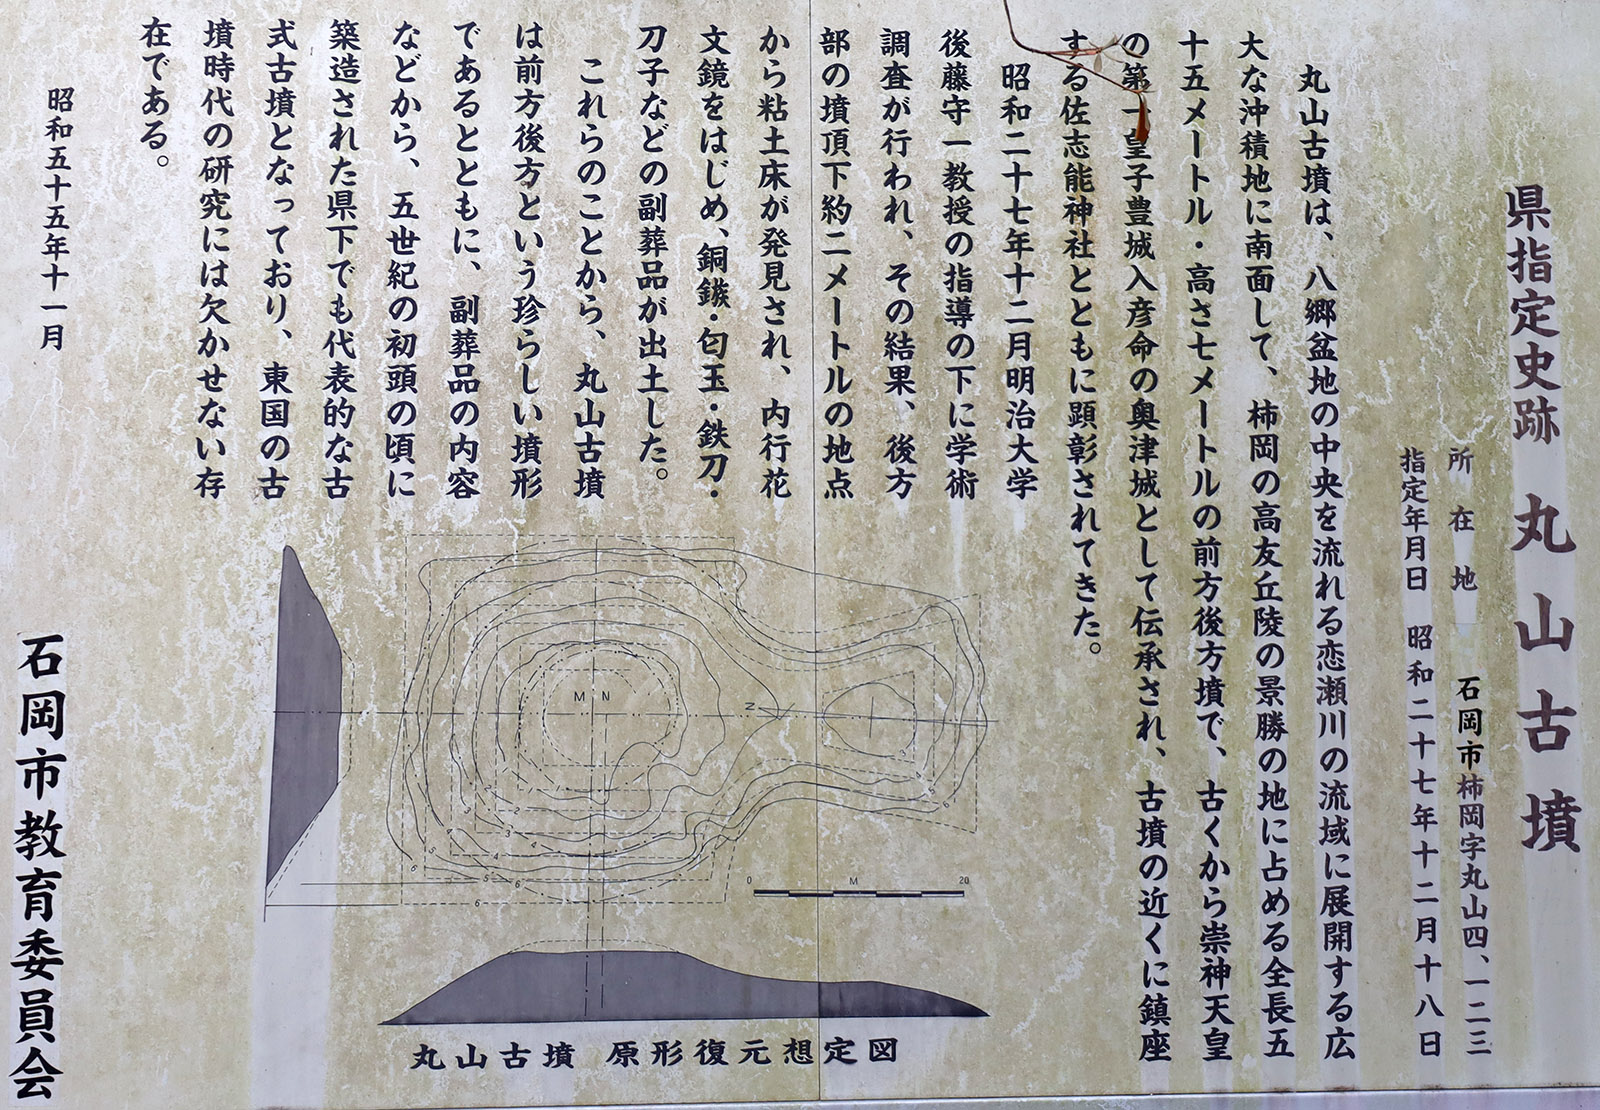 県指定史跡 丸山古墳
所在地 石岡市柿岡字丸山四、一二三
指定年月日 昭和二十七年十二月十八日
丸山古墳は、八郷盆地の中央を流れる恋瀬川の流域に展開する広
大な沖積地に南面して、柿岡の高友丘陵の景勝の地に占める全長五
十五メートル・高さ七メートルの前方後方墳で、古くから崇神天皇
の第一皇子豊城入彦命の奥津城として伝承され、古墳の近くに鎮座
する佐志能神社とともに顕彰されてきた。
昭和二十七年十二月明治大学
後藤守一教授の指導の下に学術
調査が行われ、その結果、後方
部の墳頂下約二メートルの地点
から粘土床が発見され、内行花
文鏡をはじめ、銅鏃・勾玉・鉄刀・
刀子などの副葬品が出土した。
これらのことから、丸山古墳
は前方後方という珍らしい墳形
であるとともに、副葬品の内容
などから、五世紀の初頭の頃に
築造された県下でも代表的な古
式古墳となっており、東国の古
墳時代の研究には欠かせない存
在である。
昭和五十五年十一月
石岡市教育委員会
M N
N
0 M 20
丸山古墳 原形復元想定図